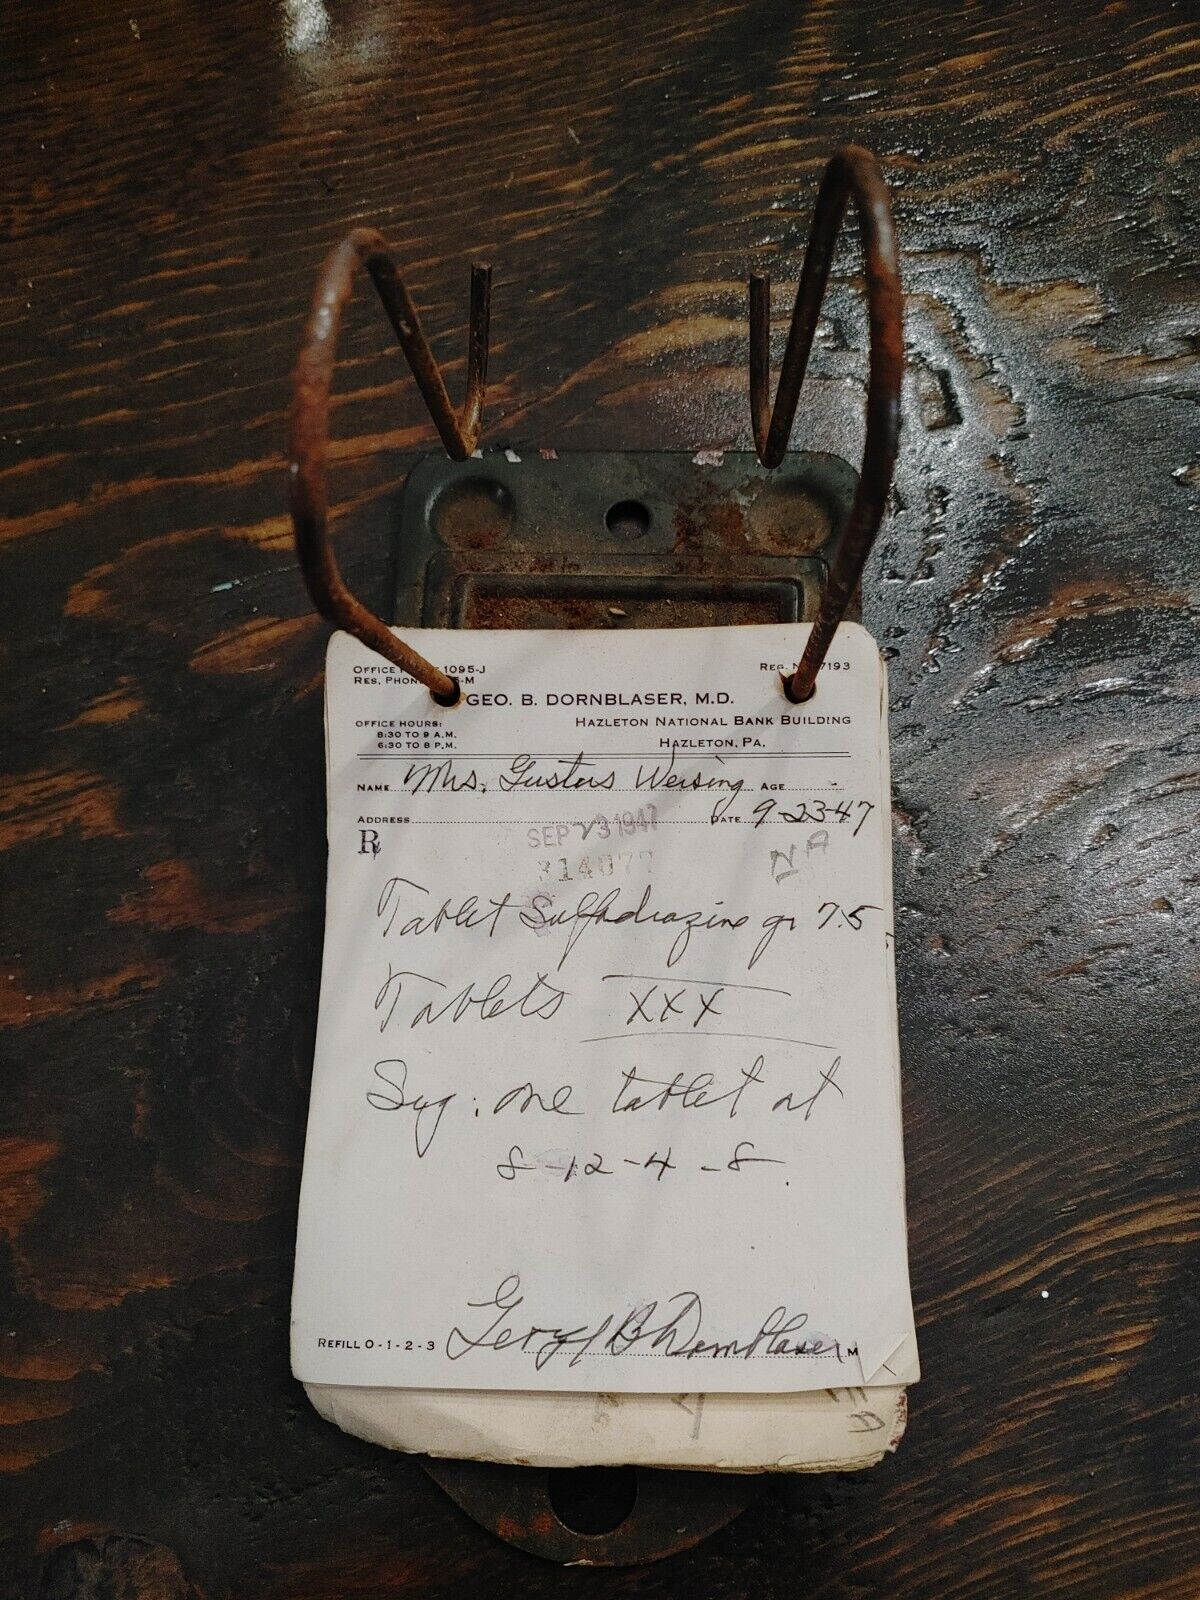 OFFICE 1095-J
RES. PHON -M
REG. N 7193
GEO. B. DORNBLASER, M.D.
OFFICE HOURS:
8:30 TO 9 A.M.
6:30 TO 8 P.M.
HAZLETON NATIONAL BANK BUILDING
HAZLETON, PA.
NAME Mrs. Gustus Wersing AGE -
ADDRESS DATE 9-23-47
R
SEP 23 1947
314077
NA
Tablet Sulfadiazine gr 7.5
Tablets XXX
Sig: one tablet at
8-12-4-8.
REFILL 0-1-2-3 George B Dornblaser M